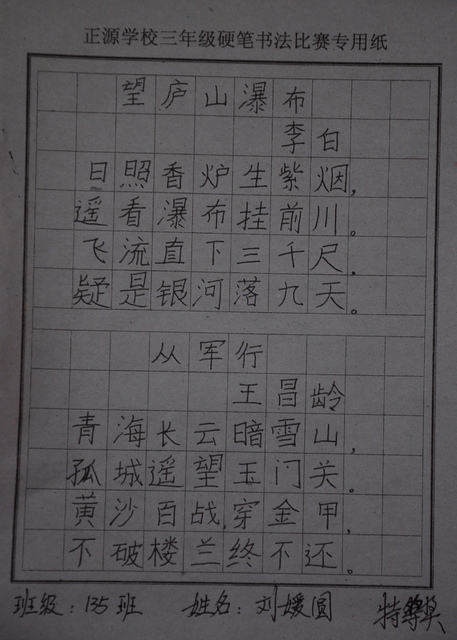 正源学校三年级硬笔书法比赛专用纸
望庐山瀑布
李白
日照香炉生紫烟,
遥看瀑布挂前川。
飞流直下三千尺,
疑是银河落九天。
从军行
王昌龄
青海长云暗雪山,
孤城遥望玉门关。
黄沙百战,穿金甲,
不破楼兰终不还。
班级:135班 姓名:刘媛圆 特等奖